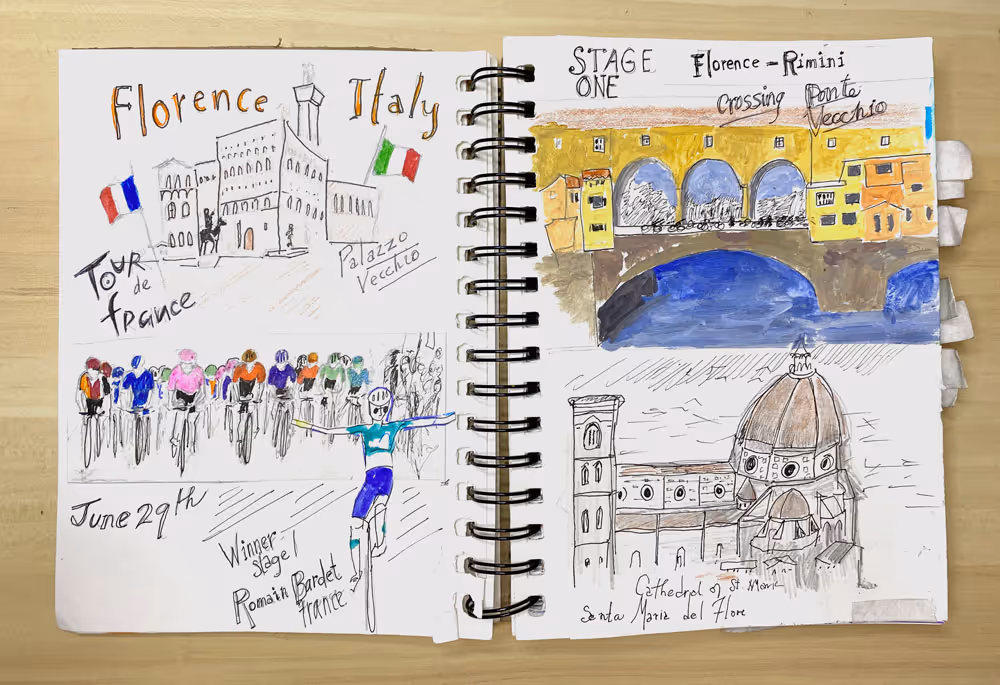 Florence Italy
Palazzo
Vecchio
TOUR
de
france
June 29th
Winner
stage 1
Romain Bardet
france
STAGE
ONE
Florence - Rimini
crossing Ponte
Vecchio
Cathedral of St
Santa Maria del Flore